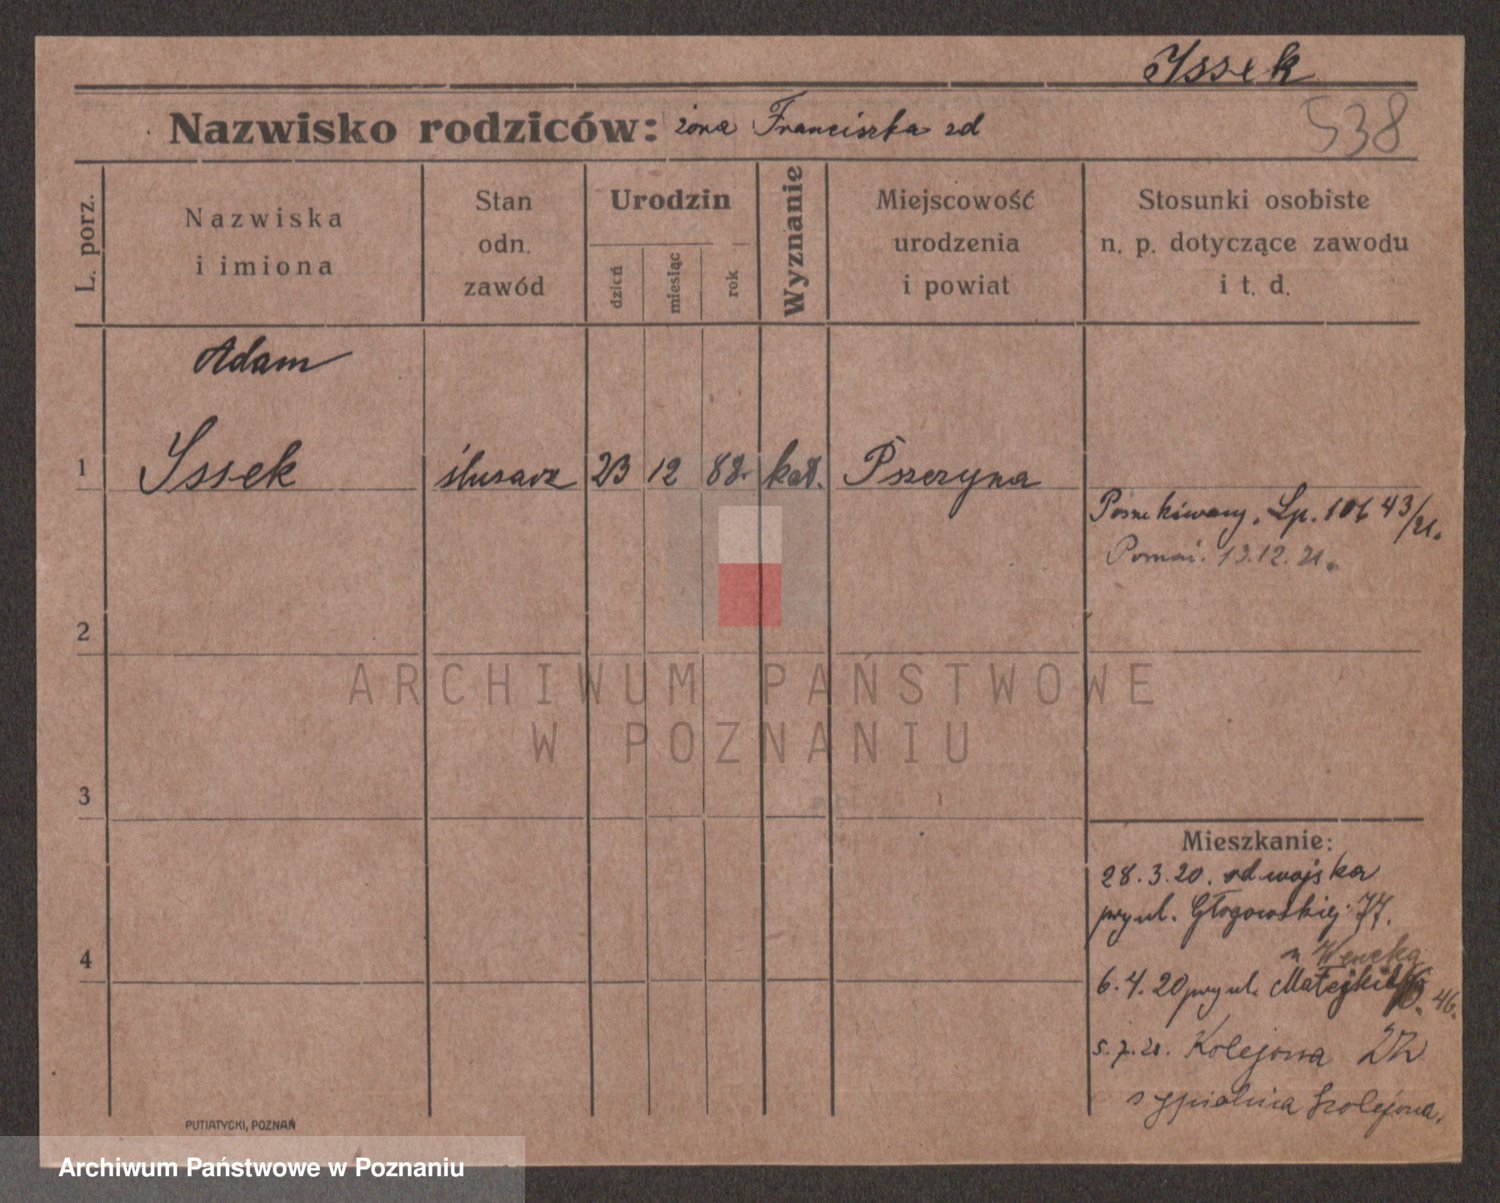 Yssek
538
Nazwisko rodziców: żona Franciszka zd
L. porz.
Nazwiska
i imiona
Stan
odn.
zawód
Urodzin
dzień
miesiąc
rok
Wyznanie
Miejscowość
urodzenia
i powiat
Stosunki osobiste
n. p. dotyczące zawodu
i t. d.
Adam
1 Yssek ślusarz 23 12 88. kat. Pszczyna
Poszukiwany, Lp. 43/21.
12.21.
2
3
4
Mieszkanie:
28.3.20. od wojska
przy ul. Głogowskiej 77.
u Wencka
6.4.20 przy ul. Matejki 46.
5.7.21. Kolejowa
sypialnia kolejowa.
PUTIATYCKI, POZNAŃ
ARCHIWUM PAŃSTWOWE
W POZNANIU
Archiwum Państwowe w Poznaniu